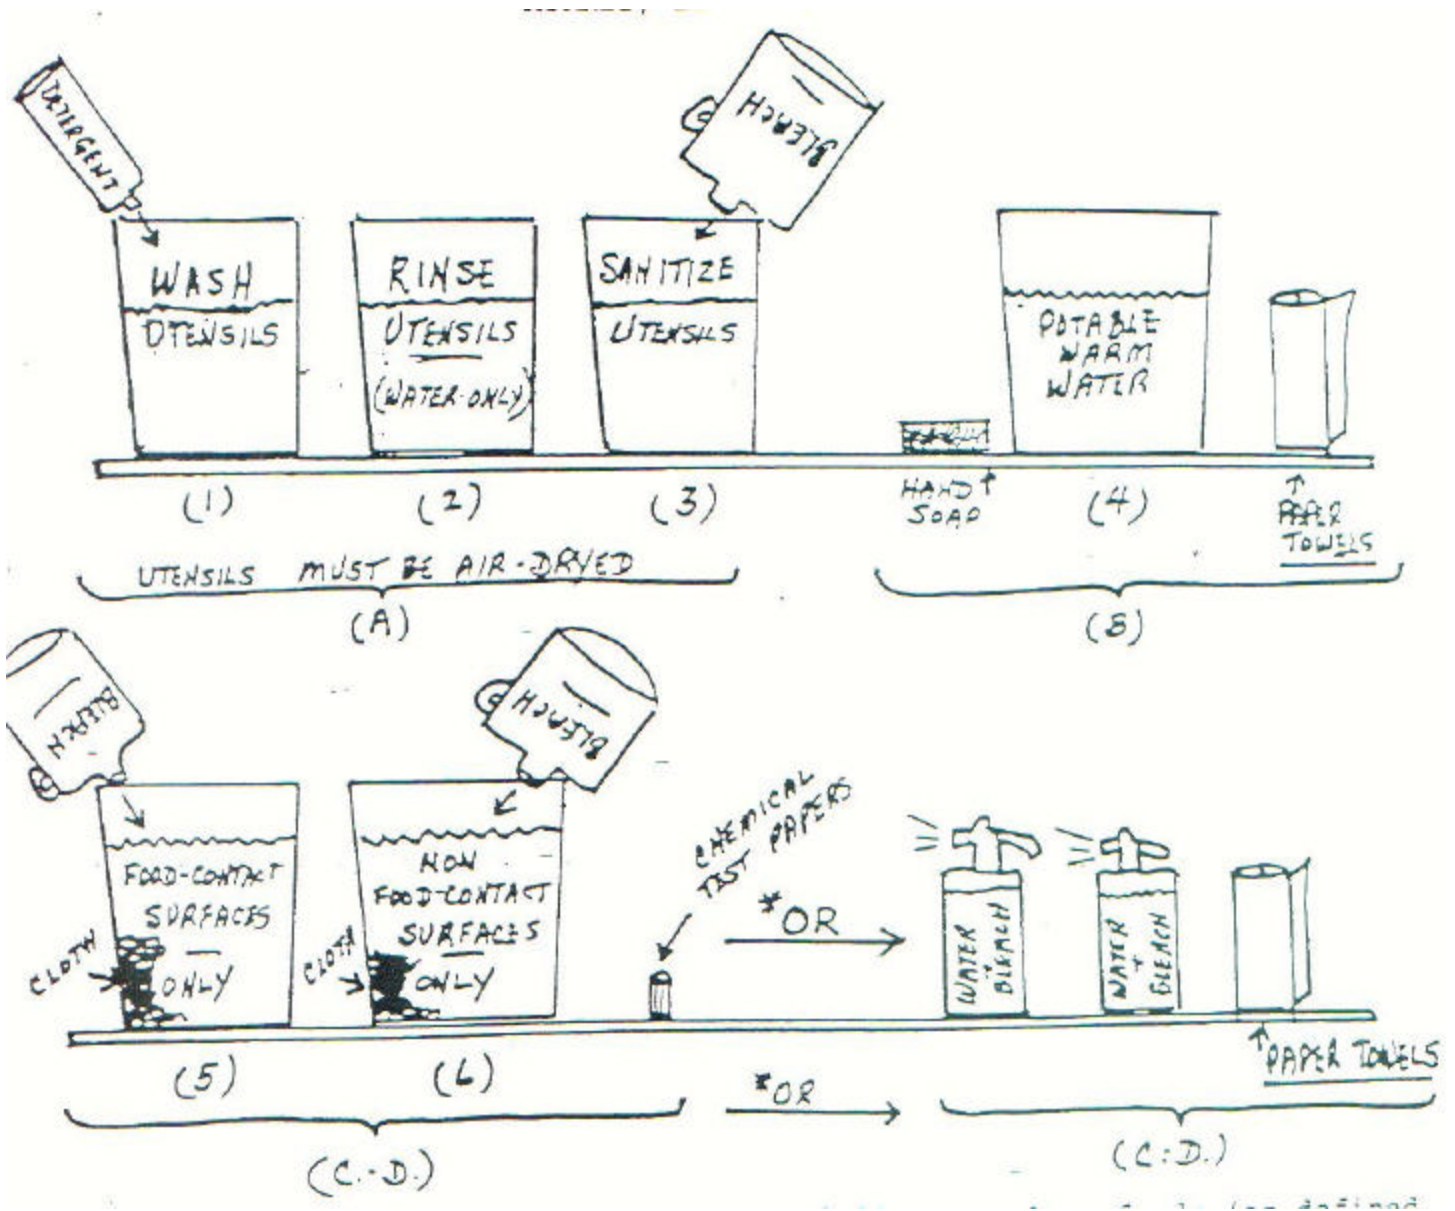 DETERGENT
BLEACH
WASH
UTENSILS
RINSE
UTENSILS
(WATER-ONLY)
SANITIZE
UTENSILS
POTABLE
WARM
WATER
(1)
(2)
(3)
HAND
SOAP
(4)
PAPER
TOWELS
UTENSILS MUST BE AIR-DRYED
(A)
(B)
BLEACH
BLEACH
FOOD-CONTACT
SURFACES
ONLY
CLOTH
NON
FOOD-CONTACT
SURFACES
ONLY
CLOTH
CHEMICAL
TEST PAPERS
*OR
WATER
+
BLEACH
WATER
+
BLEACH
PAPER TOWELS
(5)
(6)
*OR
(C.-D.)
(C.-D.)